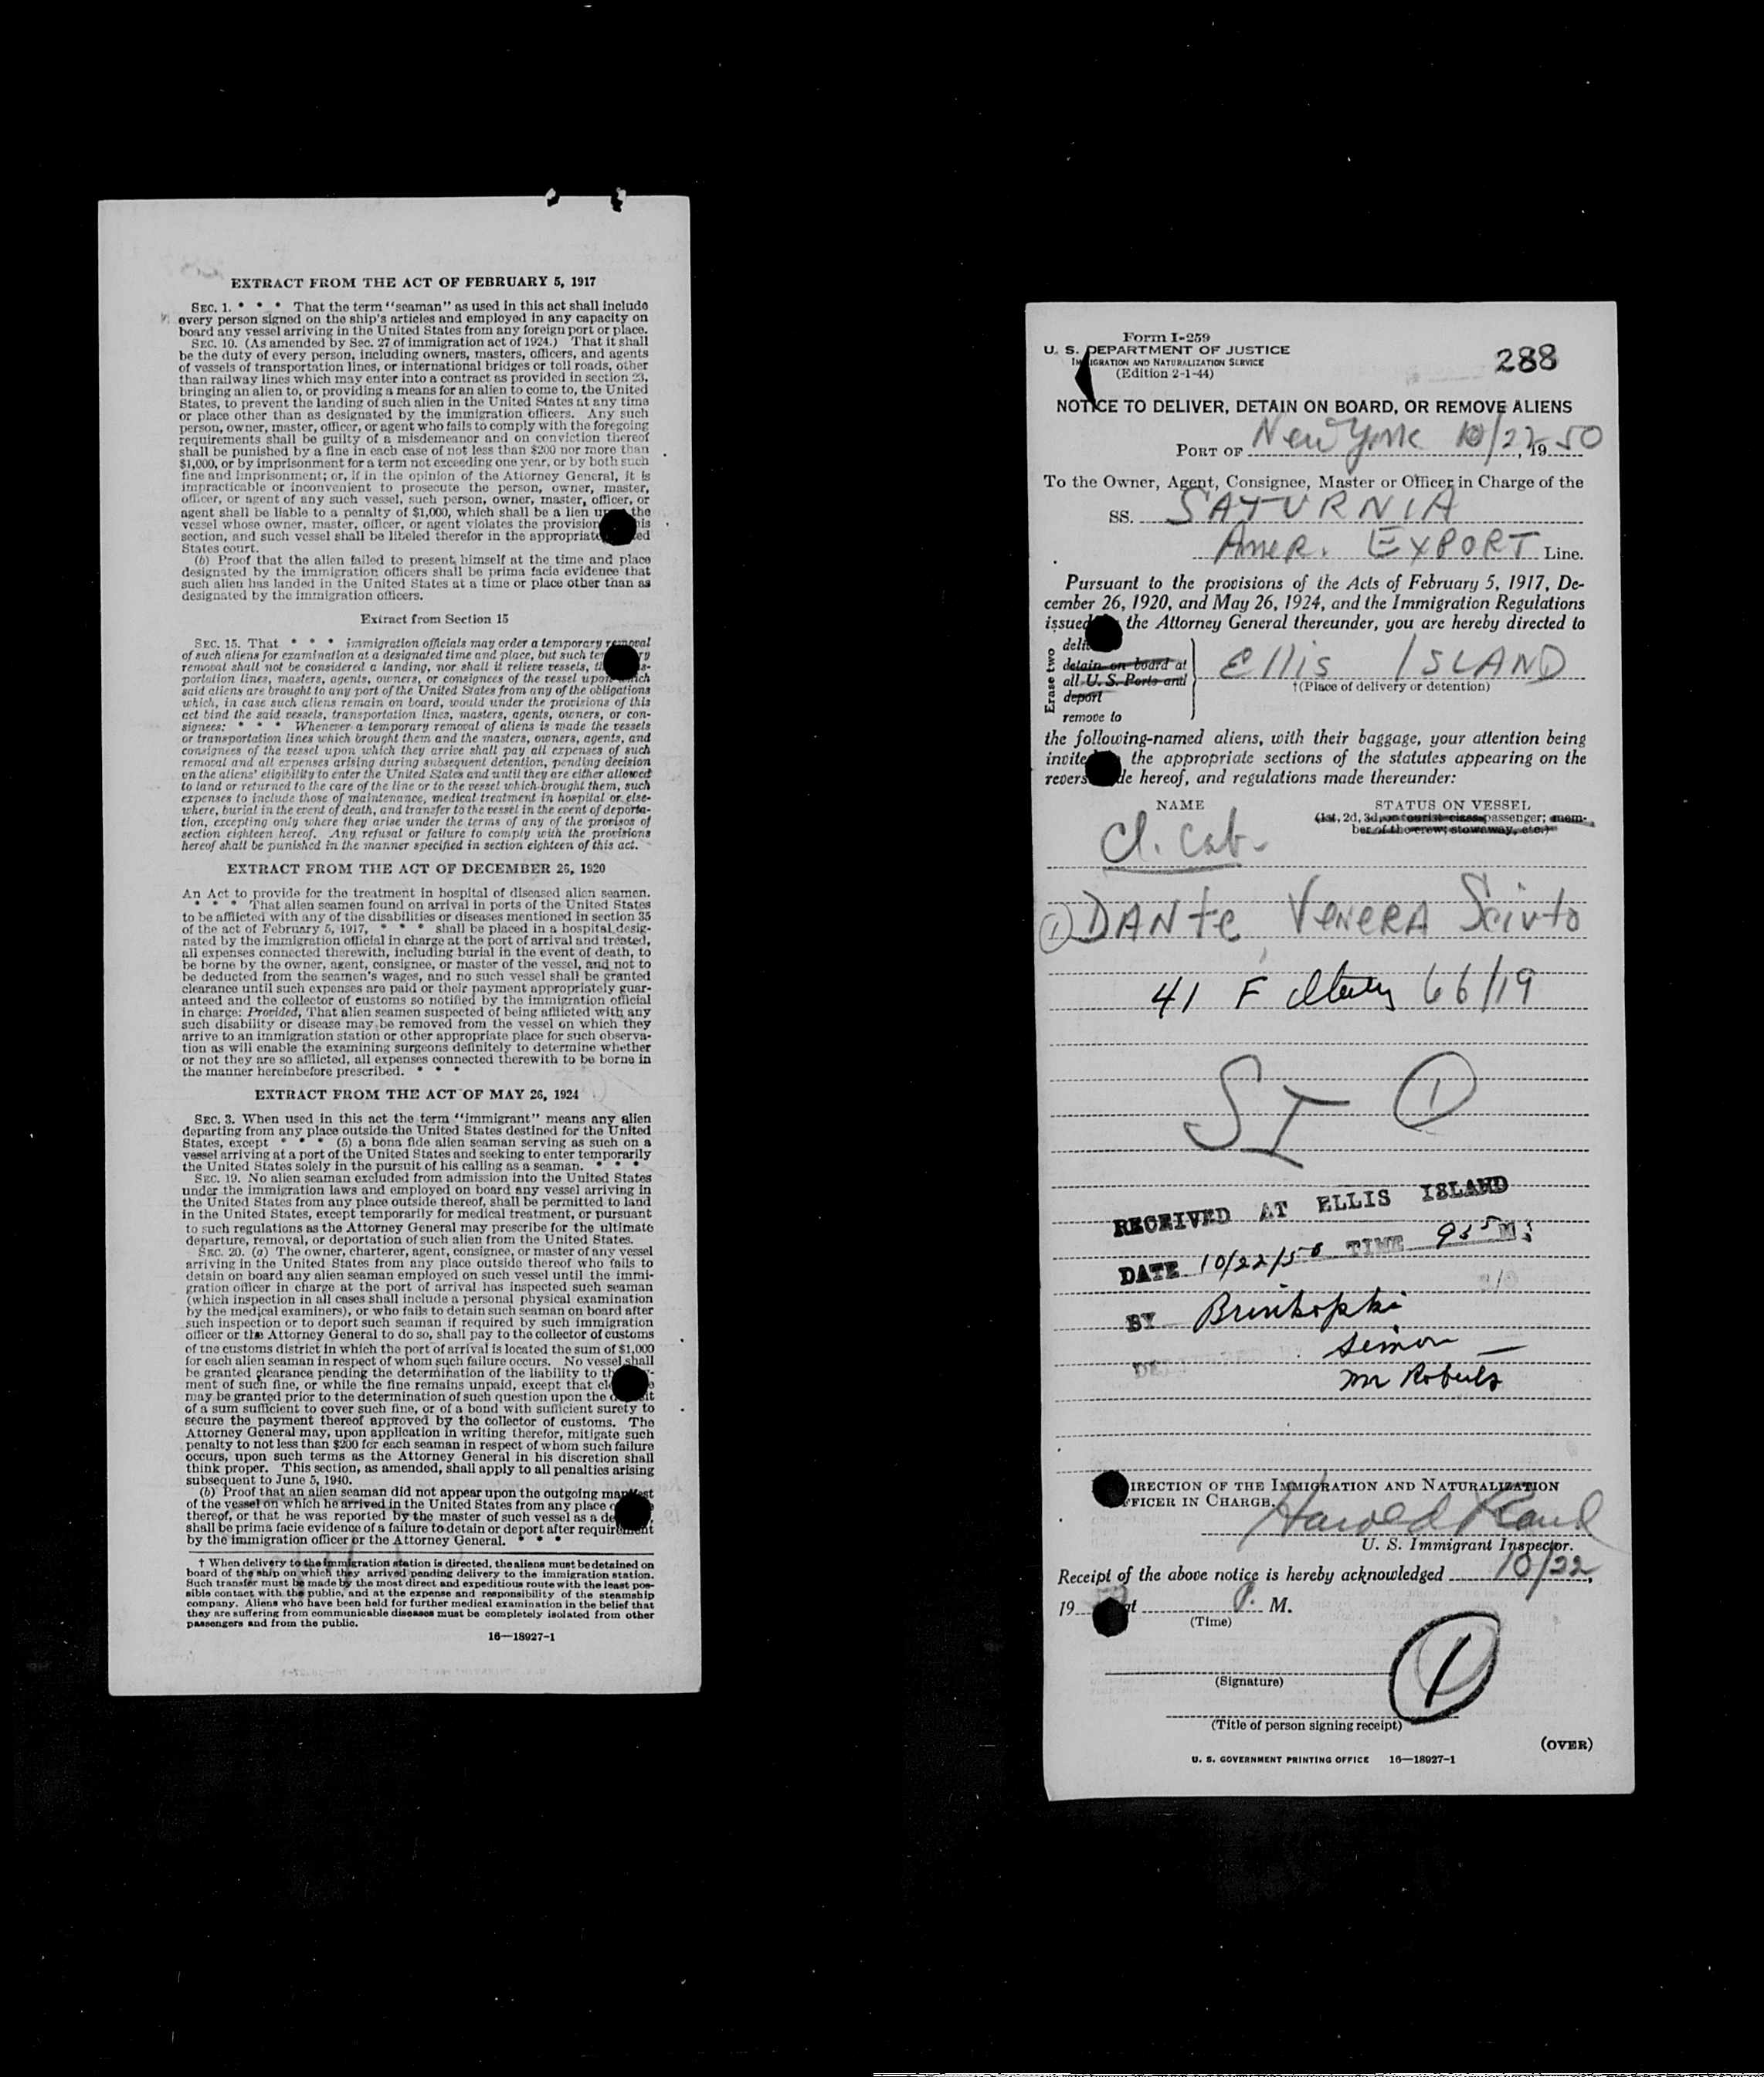 EXTRACT FROM THE ACT OF FEBRUARY 5, 1917
SEC. 1. * * * That the term "seaman" as used in this act shall include
every person signed on the ship's articles and employed in any capacity on
board any vessel arriving in the United States from any foreign port or place.
SEC. 10. (As amended by Sec. 27 of immigration act of 1924.) That it shall
be the duty of every person, including owners, masters, officers, and agents
of vessels of transportation lines, or international bridges or toll roads, other
than railway lines which may enter into a contract as provided in section 23,
bringing an alien to, or providing a means for an alien to come to, the United
States, to prevent the landing of such alien in the United States at any time
or place other than as designated by the immigration officers. Any such
person, owner, master, officer, or agent who fails to comply with the foregoing
requirements shall be guilty of a misdemeanor and on conviction thereof
shall be punished by a fine in each case of not less than $200 nor more than
$1,000, or by imprisonment for a term not exceeding one year, or by both such
fine and imprisonment; or, if in the opinion of the Attorney General, it is
impracticable or inconvenient to prosecute the person, owner, master,
officer, or agent of any such vessel, such person, owner, master, officer, or
agent shall be liable to a penalty of $1,000, which shall be a lien u the
vessel whose owner, master, officer, or agent violates the provision is
section, and such vessel shall be libeled therefor in the appropriate ed
States court.
(b) Proof that the alien failed to present himself at the time and place
designated by the immigration officers shall be prima facie evidence that
such alien has landed in the United States at a time or place other than as
designated by the immigration officers.
Extract from Section 15
SEC. 15. That * * * immigration officials may order a temporary removal
of such aliens for examination at a designated time and place, but such te ry
removal shall not be considered a landing, nor shall it relieve vessels, t s-
portation lines, masters, agents, owners, or consignees of the vessel upon which
said aliens are brought to any port of the United States from any of the obligations
which, in case such aliens remain on board, would under the provisions of this
act bind the said vessels, transportation lines, masters, agents, owners, or con-
signees: * * * Whenever a temporary removal of aliens is made the vessels
or transportation lines which brought them and the masters, owners, agents, and
consignees of the vessel upon which they arrive shall pay all expenses of such
removal and all expenses arising during subsequent detention, pending decision
on the aliens' eligibility to enter the United States and until they are either allowed
to land or returned to the care of the line or to the vessel which brought them, such
expenses to include those of maintenance, medical treatment in hospital or else-
where, burial in the event of death, and transfer to the vessel in the event of deporta-
tion, excepting only where they arise under the terms of any of the provisos of
section eighteen hereof. Any refusal or failure to comply with the provisions
hereof shall be punished in the manner specified in section eighteen of this act.
EXTRACT FROM THE ACT OF DECEMBER 26, 1920
An Act to provide for the treatment in hospital of diseased alien seamen.
* * * That alien seamen found on arrival in ports of the United States
to be afflicted with any of the disabilities or diseases mentioned in section 35
of the act of February 5, 1917, * * * shall be placed in a hospital desig-
nated by the immigration official in charge at the port of arrival and treated,
all expenses connected therewith, including burial in the event of death, to
be borne by the owner, agent, consignee, or master of the vessel, and not to
be deducted from the seamen's wages, and no such vessel shall be granted
clearance until such expenses are paid or their payment appropriately guar-
anteed and the collector of customs so notified by the immigration official
in charge: Provided, That alien seamen suspected of being afflicted with any
such disability or disease may be removed from the vessel on which they
arrive to an immigration station or other appropriate place for such observa-
tion as will enable the examining surgeons definitely to determine whether
or not they are so afflicted, all expenses connected therewith to be borne in
the manner hereinbefore prescribed. * * *
EXTRACT FROM THE ACT OF MAY 26, 1924
SEC. 3. When used in this act the term "immigrant" means any alien
departing from any place outside the United States destined for the United
States, except * * * (5) a bona fide alien seaman serving as such on a
vessel arriving at a port of the United States and seeking to enter temporarily
the United States solely in the pursuit of his calling as a seaman. * * *
SEC. 19. No alien seaman excluded from admission into the United States
under the immigration laws and employed on board any vessel arriving in
the United States from any place outside thereof, shall be permitted to land
in the United States, except temporarily for medical treatment, or pursuant
to such regulations as the Attorney General may prescribe for the ultimate
departure, removal, or deportation of such alien from the United States.
SEC. 20. (a) The owner, charterer, agent, consignee, or master of any vessel
arriving in the United States from any place outside thereof who fails to
detain on board any alien seaman employed on such vessel until the immi-
gration officer in charge at the port of arrival has inspected such seaman
(which inspection in all cases shall include a personal physical examination
by the medical examiners), or who fails to detain such seaman on board after
such inspection or to deport such seaman if required by such immigration
officer or the Attorney General to do so, shall pay to the collector of customs
of the customs district in which the port of arrival is located the sum of $1,000
for each alien seaman in respect of whom such failure occurs. No vessel shall
be granted clearance pending the determination of the liability to th -
ment of such fine, or while the fine remains unpaid, except that cl e
may be granted prior to the determination of such question upon the d it
of a sum sufficient to cover such fine, or of a bond with sufficient surety to
secure the payment thereof approved by the collector of customs. The
Attorney General may, upon application in writing therefor, mitigate such
penalty to not less than $200 for each seaman in respect of whom such failure
occurs, upon such terms as the Attorney General in his discretion shall
think proper. This section, as amended, shall apply to all penalties arising
subsequent to June 5, 1940.
(b) Proof that an alien seaman did not appear upon the outgoing manifest
of the vessel on which he arrived in the United States from any place o
thereof, or that he was reported by the master of such vessel as a de
shall be prima facie evidence of a failure to detain or deport after requirement
by the immigration officer or the Attorney General. * * *
† When delivery to the immigration station is directed, the aliens must be detained on
board of the ship on which they arrived pending delivery to the immigration station.
Such transfer must be made by the most direct and expeditious route with the least pos-
sible contact with the public, and at the expense and responsibility of the steamship
company. Aliens who have been held for further medical examination in the belief that
they are suffering from communicable diseases must be completely isolated from other
passengers and from the public.
16—18927-1
Form I-259
U. S. DEPARTMENT OF JUSTICE
IMMIGRATION AND NATURALIZATION SERVICE
(Edition 2-1-44)
288
NOTICE TO DELIVER, DETAIN ON BOARD, OR REMOVE ALIENS
PORT OF New York 10/22, 1950
To the Owner, Agent, Consignee, Master or Officer in Charge of the
SS. SATURNIA
Amer. EXPORT Line.
Pursuant to the provisions of the Acts of February 5, 1917, De-
cember 26, 1920, and May 26, 1924, and the Immigration Regulations
issued the Attorney General thereunder, you are hereby directed to
Erase two
deli
detain on board at
all U. S. Ports and
deport
remove to
Ellis ISLAND
†(Place of delivery or detention)
the following-named aliens, with their baggage, your attention being
invite the appropriate sections of the statutes appearing on the
revers de hereof, and regulations made thereunder:
NAME
STATUS ON VESSEL
(1st, 2d, 3d, or tourist class passenger; mem-
ber of the crew; stowaway, etc.)
Cl. Cab.
① DANte, VeneRA Scivto
41 F Italy 66/19
SI ①
RECEIVED AT ELLIS ISLAND
DATE 10/22/50 TIME 935 M.
BY
Simon
Mr Roberts
DIRECTION OF THE IMMIGRATION AND NATURALIZATION
OFFICER IN CHARGE.
Harold
U. S. Immigrant Inspector.
Receipt of the above notice is hereby acknowledged 10/22,
19 at P. M.
(Time)
①
(Signature)
(Title of person signing receipt)
(OVER)
U. S. GOVERNMENT PRINTING OFFICE 16—18927-1